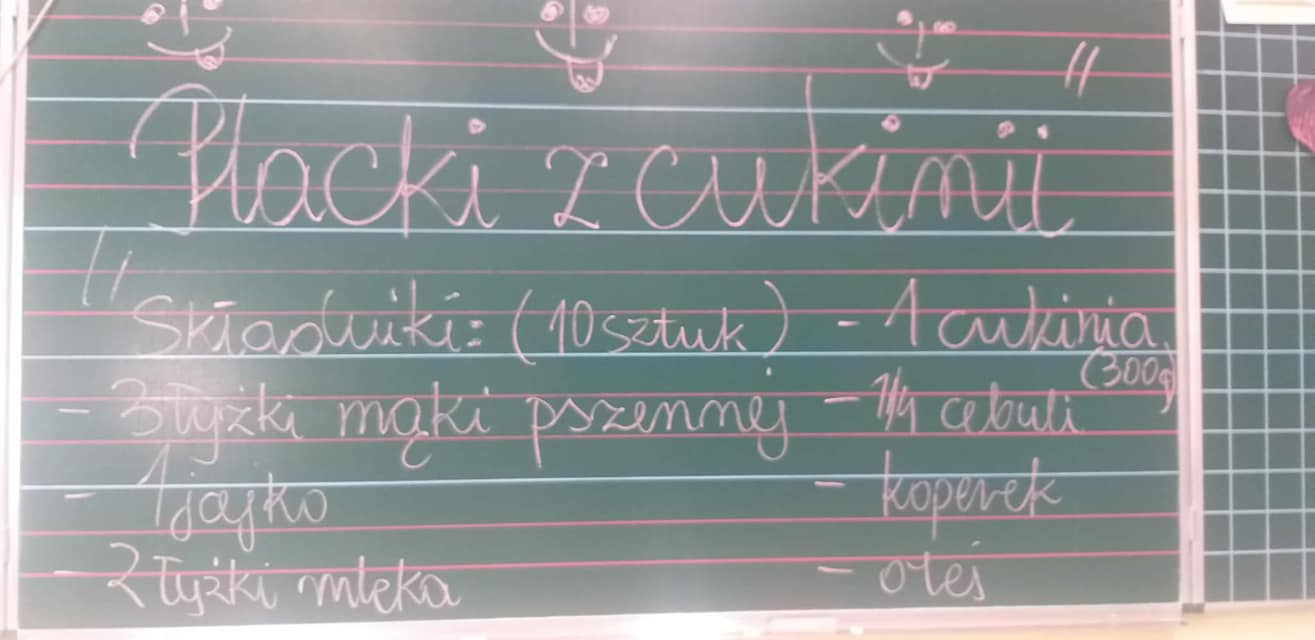 "Placki z cukinii"
Składniki: (10 sztuk) - 1 cukinia
(300g)
- 3 łyżki mąki pszennej - 1/4 cebuli
- 1 jajko - koperek
- 2 łyżki mleka - olej